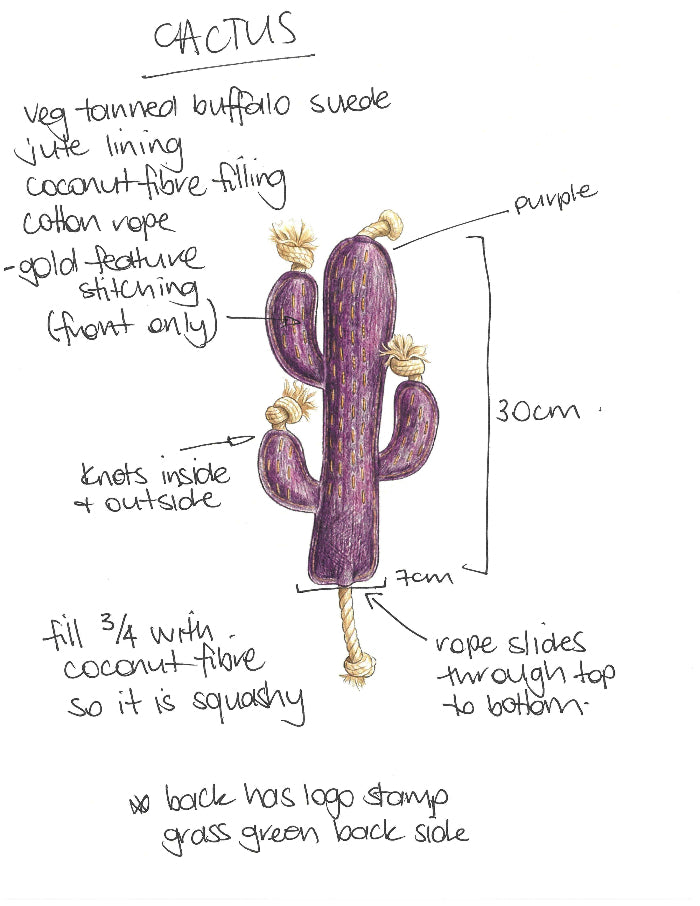 CACTUS
veg tanned buffalo suede
jute lining
coconut fibre filling
cotton rope
- gold feature
stitching
(front only)
purple
30cm
knots inside
+ outside
7cm
fill 3/4 with
coconut fibre
so it is squashy
rope slides
through top
to bottom.
back has logo stamp
grass green back side